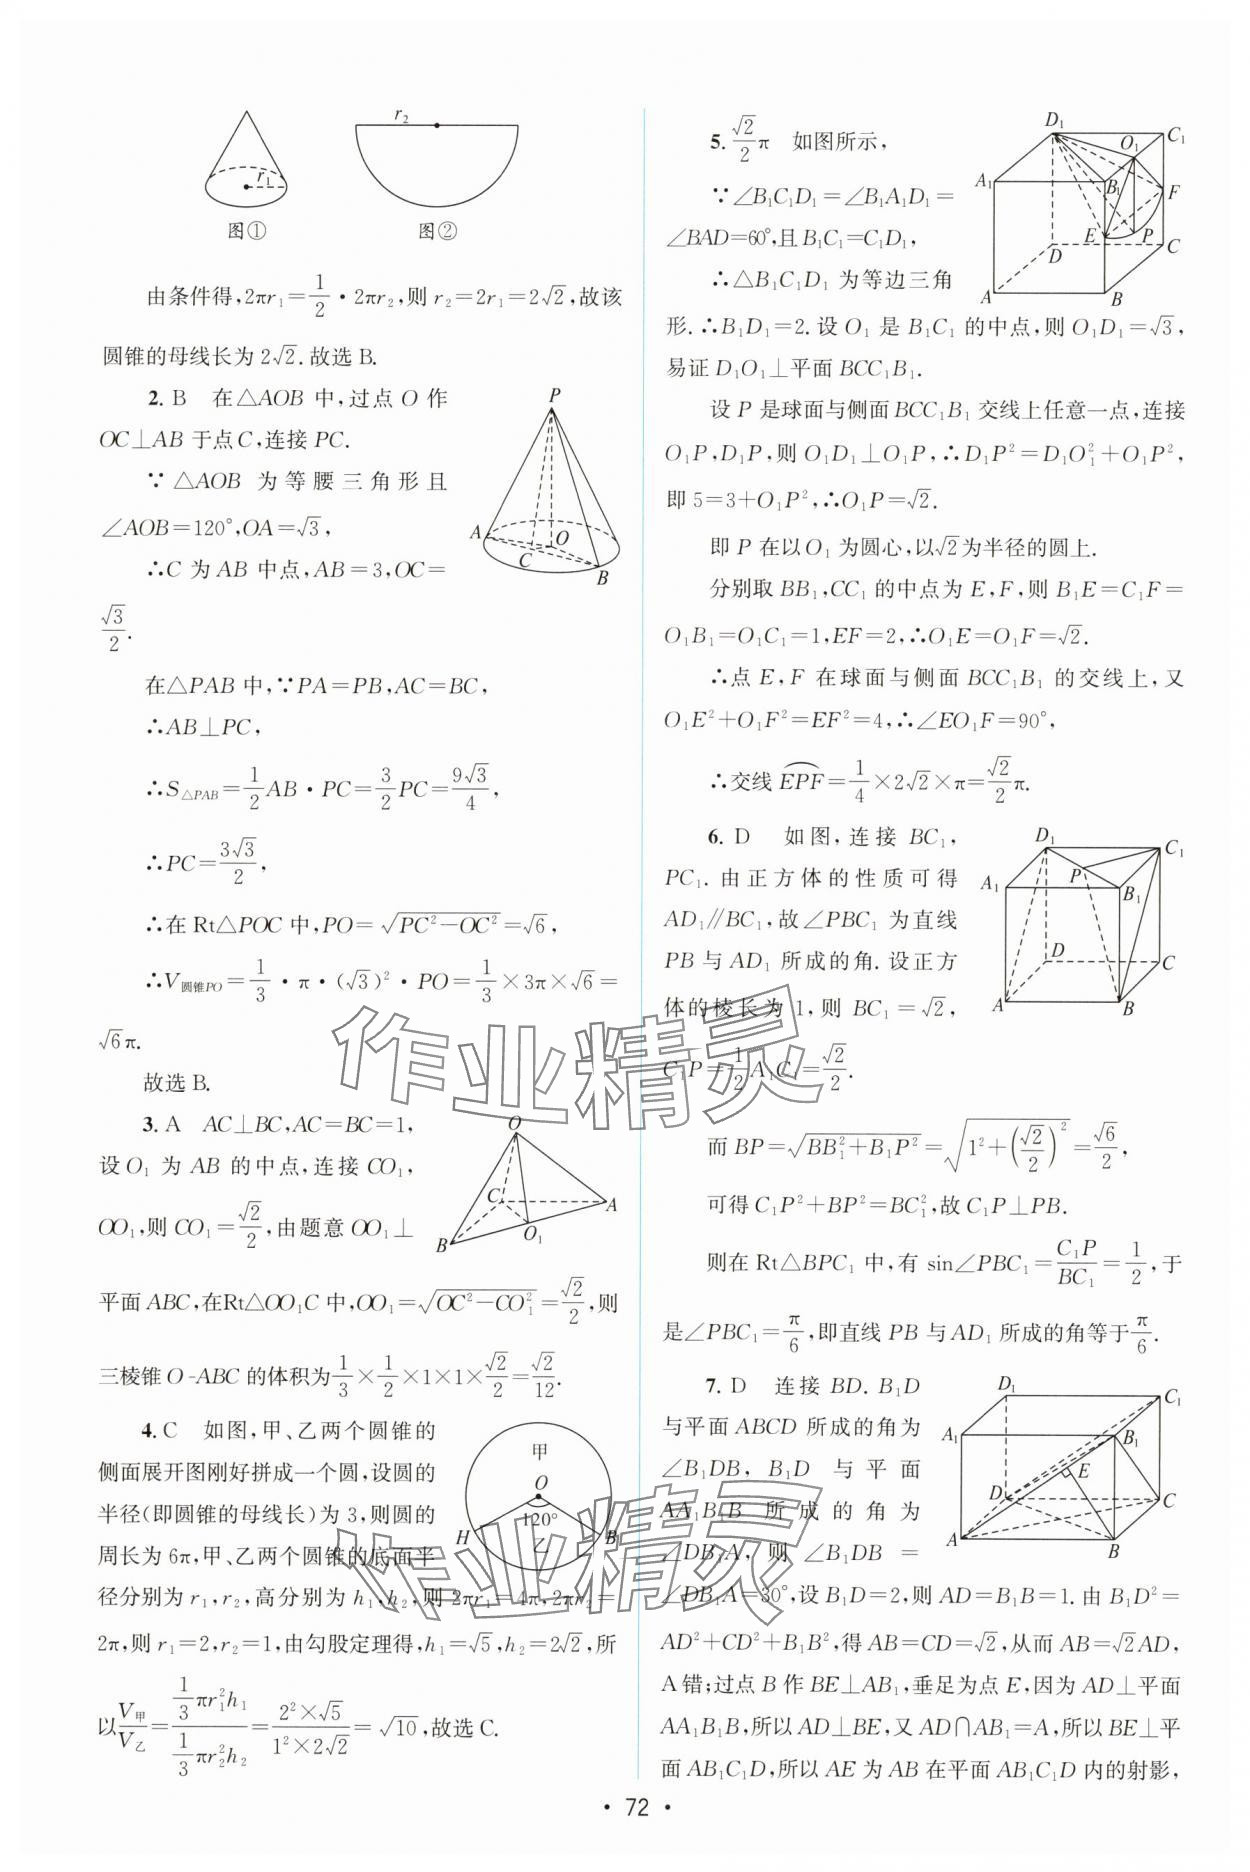 r₁
r₂
图①
图②
由条件得,2πr₁=1/2·2πr₂,则r₂=2r₁=2√2,故该
圆锥的母线长为2√2.故选B.
2. B 在△AOB中,过点O作
OC⊥AB于点C,连接PC.
∵△AOB为等腰三角形且
∠AOB=120°,OA=√3,
∴C为AB中点,AB=3,OC=
√3/2.
P
A
O
C
B
在△PAB中,∵PA=PB,AC=BC,
∴AB⊥PC,
∴S△PAB=1/2AB·PC=3/2PC=9√3/4,
∴PC=3√3/2,
∴在Rt△POC中,PO=√(PC²-OC²)=√6,
∴V圆锥PO=1/3·π·(√3)²·PO=1/3×3π×√6=
√6π.
故选B.
3. A AC⊥BC,AC=BC=1,
设O₁为AB的中点,连接CO₁,
OO₁,则CO₁=√2/2,由题意OO₁⊥
O
C
A
B
O₁
平面ABC,在Rt△OO₁C中,OO₁=√(OC²-CO₁²)=√2/2,则
三棱锥O-ABC的体积为1/3×1/2×1×1×√2/2=√2/12.
4. C 如图,甲、乙两个圆锥的
侧面展开图刚好拼成一个圆,设圆的
半径(即圆锥的母线长)为3,则圆的
周长为6π,甲、乙两个圆锥的底面半
甲
O
120°
H
B
乙
径分别为r₁,r₂,高分别为h₁,h₂,则2πr₁=4π,2πr₂=
2π,则r₁=2,r₂=1,由勾股定理得,h₁=√5,h₂=2√2,所
以V甲/V乙=(1/3πr₁²h₁)/(1/3πr₂²h₂)=(2²×√5)/(1²×2√2)=√10,故选C.
5. √2/2π 如图所示,
∵∠B₁C₁D₁=∠B₁A₁D₁=
∠BAD=60°,且B₁C₁=C₁D₁,
∴△B₁C₁D₁为等边三角
D₁
C₁
O₁
A₁
B₁
F
E
P
D
C
A
B
形.∴B₁D₁=2.设O₁是B₁C₁的中点,则O₁D₁=√3,
易证D₁O₁⊥平面BCC₁B₁.
设P是球面与侧面BCC₁B₁交线上任意一点,连接
O₁P,D₁P,则O₁D₁⊥O₁P,∴D₁P²=D₁O₁²+O₁P²,
即5=3+O₁P²,∴O₁P=√2.
即P在以O₁为圆心,以√2为半径的圆上.
分别取BB₁,CC₁的中点为E,F,则B₁E=C₁F=
O₁B₁=O₁C₁=1,EF=2,∴O₁E=O₁F=√2.
∴点E,F在球面与侧面BCC₁B₁的交线上,又
O₁E²+O₁F²=EF²=4,∴∠EO₁F=90°,
∴交线⌒EPF=1/4×2√2×π=√2/2π.
6. D 如图,连接BC₁,
PC₁.由正方体的性质可得
AD₁∥BC₁,故∠PBC₁为直线
PB与AD₁所成的角.设正方
体的棱长为1,则BC₁=√2,
C₁P=1/2A₁C₁=√2/2.
D₁
C₁
P
A₁
B₁
D
C
A
B
而BP=√(BB₁²+B₁P²)=√(1²+(√2/2)²)=√6/2,
可得C₁P²+BP²=BC₁²,故C₁P⊥PB.
则在Rt△BPC₁中,有sin∠PBC₁=C₁P/BC₁=1/2,于
是∠PBC₁=π/6,即直线PB与AD₁所成的角等于π/6.
7. D 连接BD.B₁D
与平面ABCD所成的角为
∠B₁DB,B₁D与平面
AA₁B₁B所成的角为
∠DB₁A,则∠B₁DB=
D₁
C₁
A₁
B₁
E
D
C
A
B
∠DB₁A=30°,设B₁D=2,则AD=B₁B=1.由B₁D²=
AD²+CD²+B₁B²,得AB=CD=√2,从而AB=√2AD,
A错;过点B作BE⊥AB₁,垂足为点E,因为AD⊥平面
AA₁B₁B,所以AD⊥BE,又AD∩AB₁=A,所以BE⊥平
面AB₁C₁D,所以AE为AB在平面AB₁C₁D内的射影,
作业精灵
作业精灵
·72·